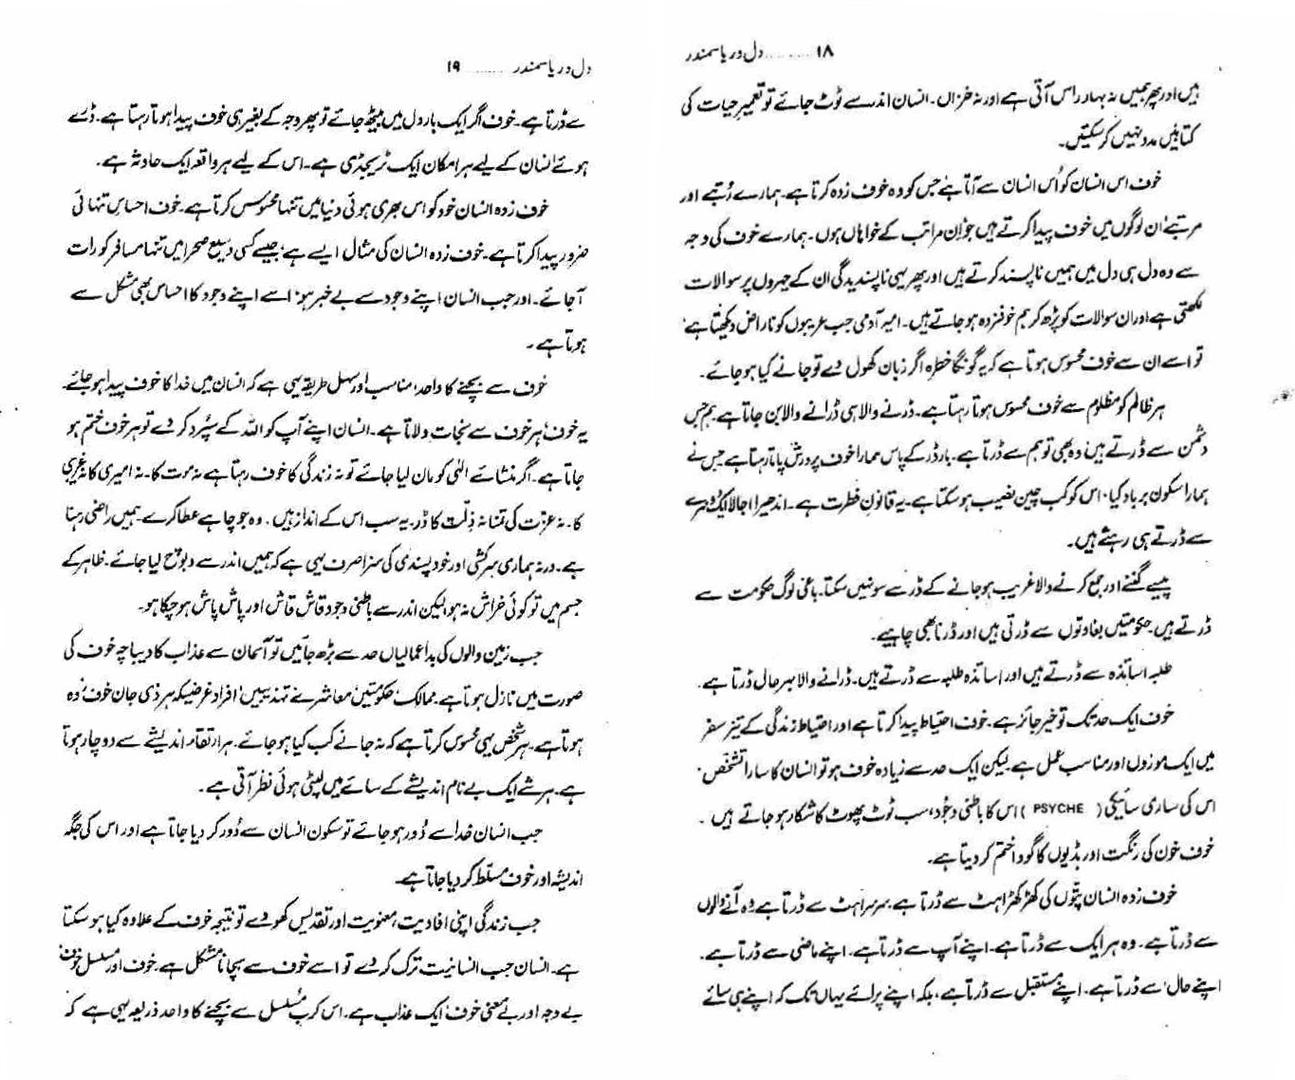 ۱۸ ......... دل دریا سمندر
ہیں اور پھر ہمیں نہ بہار راس آتی ہے اور نہ خزاں۔ انسان اندر سے ٹوٹ جائے تو تعمیرِ حیات کی
کتابیں مدد نہیں کر سکتیں۔
خوف اس انسان کو اُس انسان سے آتا ہے جس کو وہ خوف زدہ کرتا ہے۔ ہمارے رُتبے اور
مرتبے اُن لوگوں میں خوف پیدا کرتے ہیں جو اِن مراتب کے خواہاں ہوں۔ ہمارے خوف کی وجہ
سے وہ دل ہی دل میں ہمیں ناپسند کرتے ہیں اور پھر یہی ناپسندیدگی ان کے چہروں پر سوالات
لکھتی ہے اور ان سوالات کو پڑھ کر ہم خوفزدہ ہو جاتے ہیں۔ امیر آدمی جب غریبوں کو ناراض دیکھتا ہے،
تو اسے ان سے خوف محسوس ہوتا ہے کہ یہ گونگا خطرہ اگر زبان کھول دے تو جانے کیا ہو جائے۔
ہر ظالم کو مظلوم سے خوف محسوس ہوتا رہتا ہے۔ ڈرنے والا ہی ڈرانے والا بن جاتا ہے۔ ہم جس
دشمن سے ڈرتے ہیں، وہ بھی تو ہم سے ڈرتا ہے۔ بارڈر کے پاس ہمارا خوف پرورش پاتا رہتا ہے جس نے
ہمارا سکون برباد کیا، اس کو کب چین نصیب ہو سکتا ہے۔ یہ قانونِ فطرت ہے۔ اندھیرا اجالا ایک دُوسرے
سے ڈرتے ہی رہتے ہیں۔
پیسے گننے اور جمع کرنے والا غریب ہو جانے کے ڈر سے سو نہیں سکتا۔ باغی لوگ حکومت سے
ڈرتے ہیں۔ حکومتیں بغاوتوں سے ڈرتی ہیں اور ڈرنا بھی چاہیے۔
طلبہ اساتذہ سے ڈرتے ہیں اور اساتذہ طلبہ سے ڈرتے ہیں۔ ڈرانے والا بہرحال ڈرتا ہے۔
خوف ایک حد تک تو خیر جائز ہے۔ خوف احتیاط پیدا کرتا ہے اور احتیاط زندگی کے تیز سفر
میں ایک موزوں اور مناسب عمل ہے۔ لیکن ایک حد سے زیادہ خوف ہو تو انسان کا سارا تشخّص،
اس کی ساری سائیکی (PSYCHE) اس کا باطنی وجُود، سب ٹوٹ پھوٹ کا شکار ہو جاتے ہیں۔
خوف خون کی رنگت اور ہڈیوں کا گودا ختم کر دیتا ہے۔
خوف زدہ انسان پتّوں کی کھڑکھڑاہٹ سے ڈرتا ہے، سرسراہٹ سے ڈرتا ہے، وہ آنے والوں
سے ڈرتا ہے۔ وہ ہر ایک سے ڈرتا ہے۔ اپنے آپ سے ڈرتا ہے۔ اپنے ماضی سے ڈرتا ہے۔
اپنے حال سے ڈرتا ہے۔ اپنے مستقبل سے ڈرتا ہے، بلکہ اپنے پرائے یہاں تک کہ اپنے ہی سائے
دل دریا سمندر ......... ۱۹
سے ڈرتا ہے۔ خوف اگر ایک بار دل میں بیٹھ جائے تو پھر وجہ کے بغیر ہی خوف پیدا ہوتا رہتا ہے۔ ڈرے
ہوئے انسان کے لیے ہر امکان ایک ٹریجڈی ہے۔ اس کے لیے ہر واقعہ ایک حادثہ ہے۔
خوف زدہ انسان خود کو اس بھری ہوئی دنیا میں تنہا محسوس کرتا ہے۔ خوف احساسِ تنہائی
ضرور پیدا کرتا ہے۔ خوف زدہ انسان کی مثال ایسے ہے، جیسے کسی وسیع صحرا میں تنہا مسافر کو رات
آ جائے۔ اور جب انسان اپنے وجود سے بے خبر ہو، اسے اپنے وجود کا احساس بھی مشکل سے
ہوتا ہے۔
خوف سے بچنے کا واحد، مناسب اور سہل طریقہ یہی ہے کہ انسان میں خدا کا خوف پیدا ہو جائے۔
یہ خوف، ہر خوف سے نجات دلاتا ہے۔ انسان اپنے آپ کو اللہ کے سُپرد کر دے تو ہر خوف ختم ہو
جاتا ہے۔ اگر منشائے الٰہی کو مان لیا جائے تو نہ زندگی کا خوف رہتا ہے نہ موت کا۔ نہ امیری کا نہ غریبی
کا۔ نہ عزّت کی تمنا نہ ذِلّت کا ڈر۔ یہ سب اس کے انداز ہیں۔ وہ جو چاہے عطا کرے۔ ہمیں راضی رہنا
ہے۔ ورنہ ہماری سرکشی اور خود پسندی کی سزا صرف یہی ہے کہ ہمیں اندر سے دبوچ لیا جائے۔ ظاہر کے
جسم میں تو کوئی خراش نہ ہو لیکن اندر سے باطنی وجود قاش قاش اور پاش پاش ہو چکا ہو۔
جب زمین والوں کی بداعمالیاں حد سے بڑھ جائیں تو آسمان سے عذاب کا دیباچہ خوف کی
صورت میں نازل ہوتا ہے۔ ممالک، حکومتیں، معاشرے تہذیبیں، افراد غرضیکہ ہر ذی جان خوف زدہ
ہوتا ہے۔ ہر شخص یہی محسوس کرتا ہے کہ نہ جانے کب کیا ہو جائے۔ ہر ارتقاء اندیشے سے دوچار ہوتا
ہے۔ ہر شے ایک بے نام اندیشے کے سائے میں لپٹی ہوئی نظر آتی ہے۔
جب انسان خدا سے دُور ہو جائے تو سکون انسان سے دُور کر دیا جاتا ہے اور اس کی جگہ
اندیشہ اور خوف مسلّط کر دیا جاتا ہے۔
جب زندگی اپنی افادیت، معنویت اور تقدیس کھو دے تو نتیجہ خوف کے علاوہ کیا ہو سکتا
ہے۔ انسان جب انسانیت ترک کر دے تو اسے خوف سے بچانا مشکل ہے۔ خوف اور مسلسل خوف
بے وجہ اور بے معنی خوف، ایک عذاب ہے۔ اس کربِ مُسلسل سے بچنے کا واحد ذریعہ یہی ہے کہ